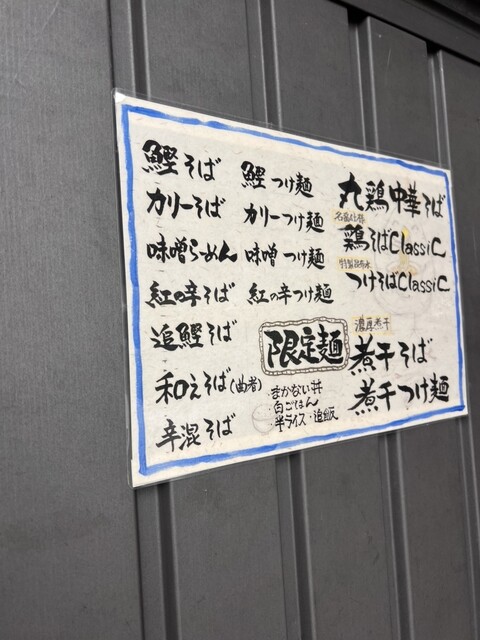 鰹そば
カリーそば
味噌らーめん
紅の辛そば
追鰹そば
和えそば(曲者)
辛混そば
鰹つけ麺
カリーつけ麺
味噌つけ麺
紅の辛つけ麺
限定麺
まかない丼
・白ごはん
・半ライス・追飯
丸鶏中華そば
鶏そばClassiC
つけそばClassiC
濃厚煮干
煮干そば
煮干つけ麺